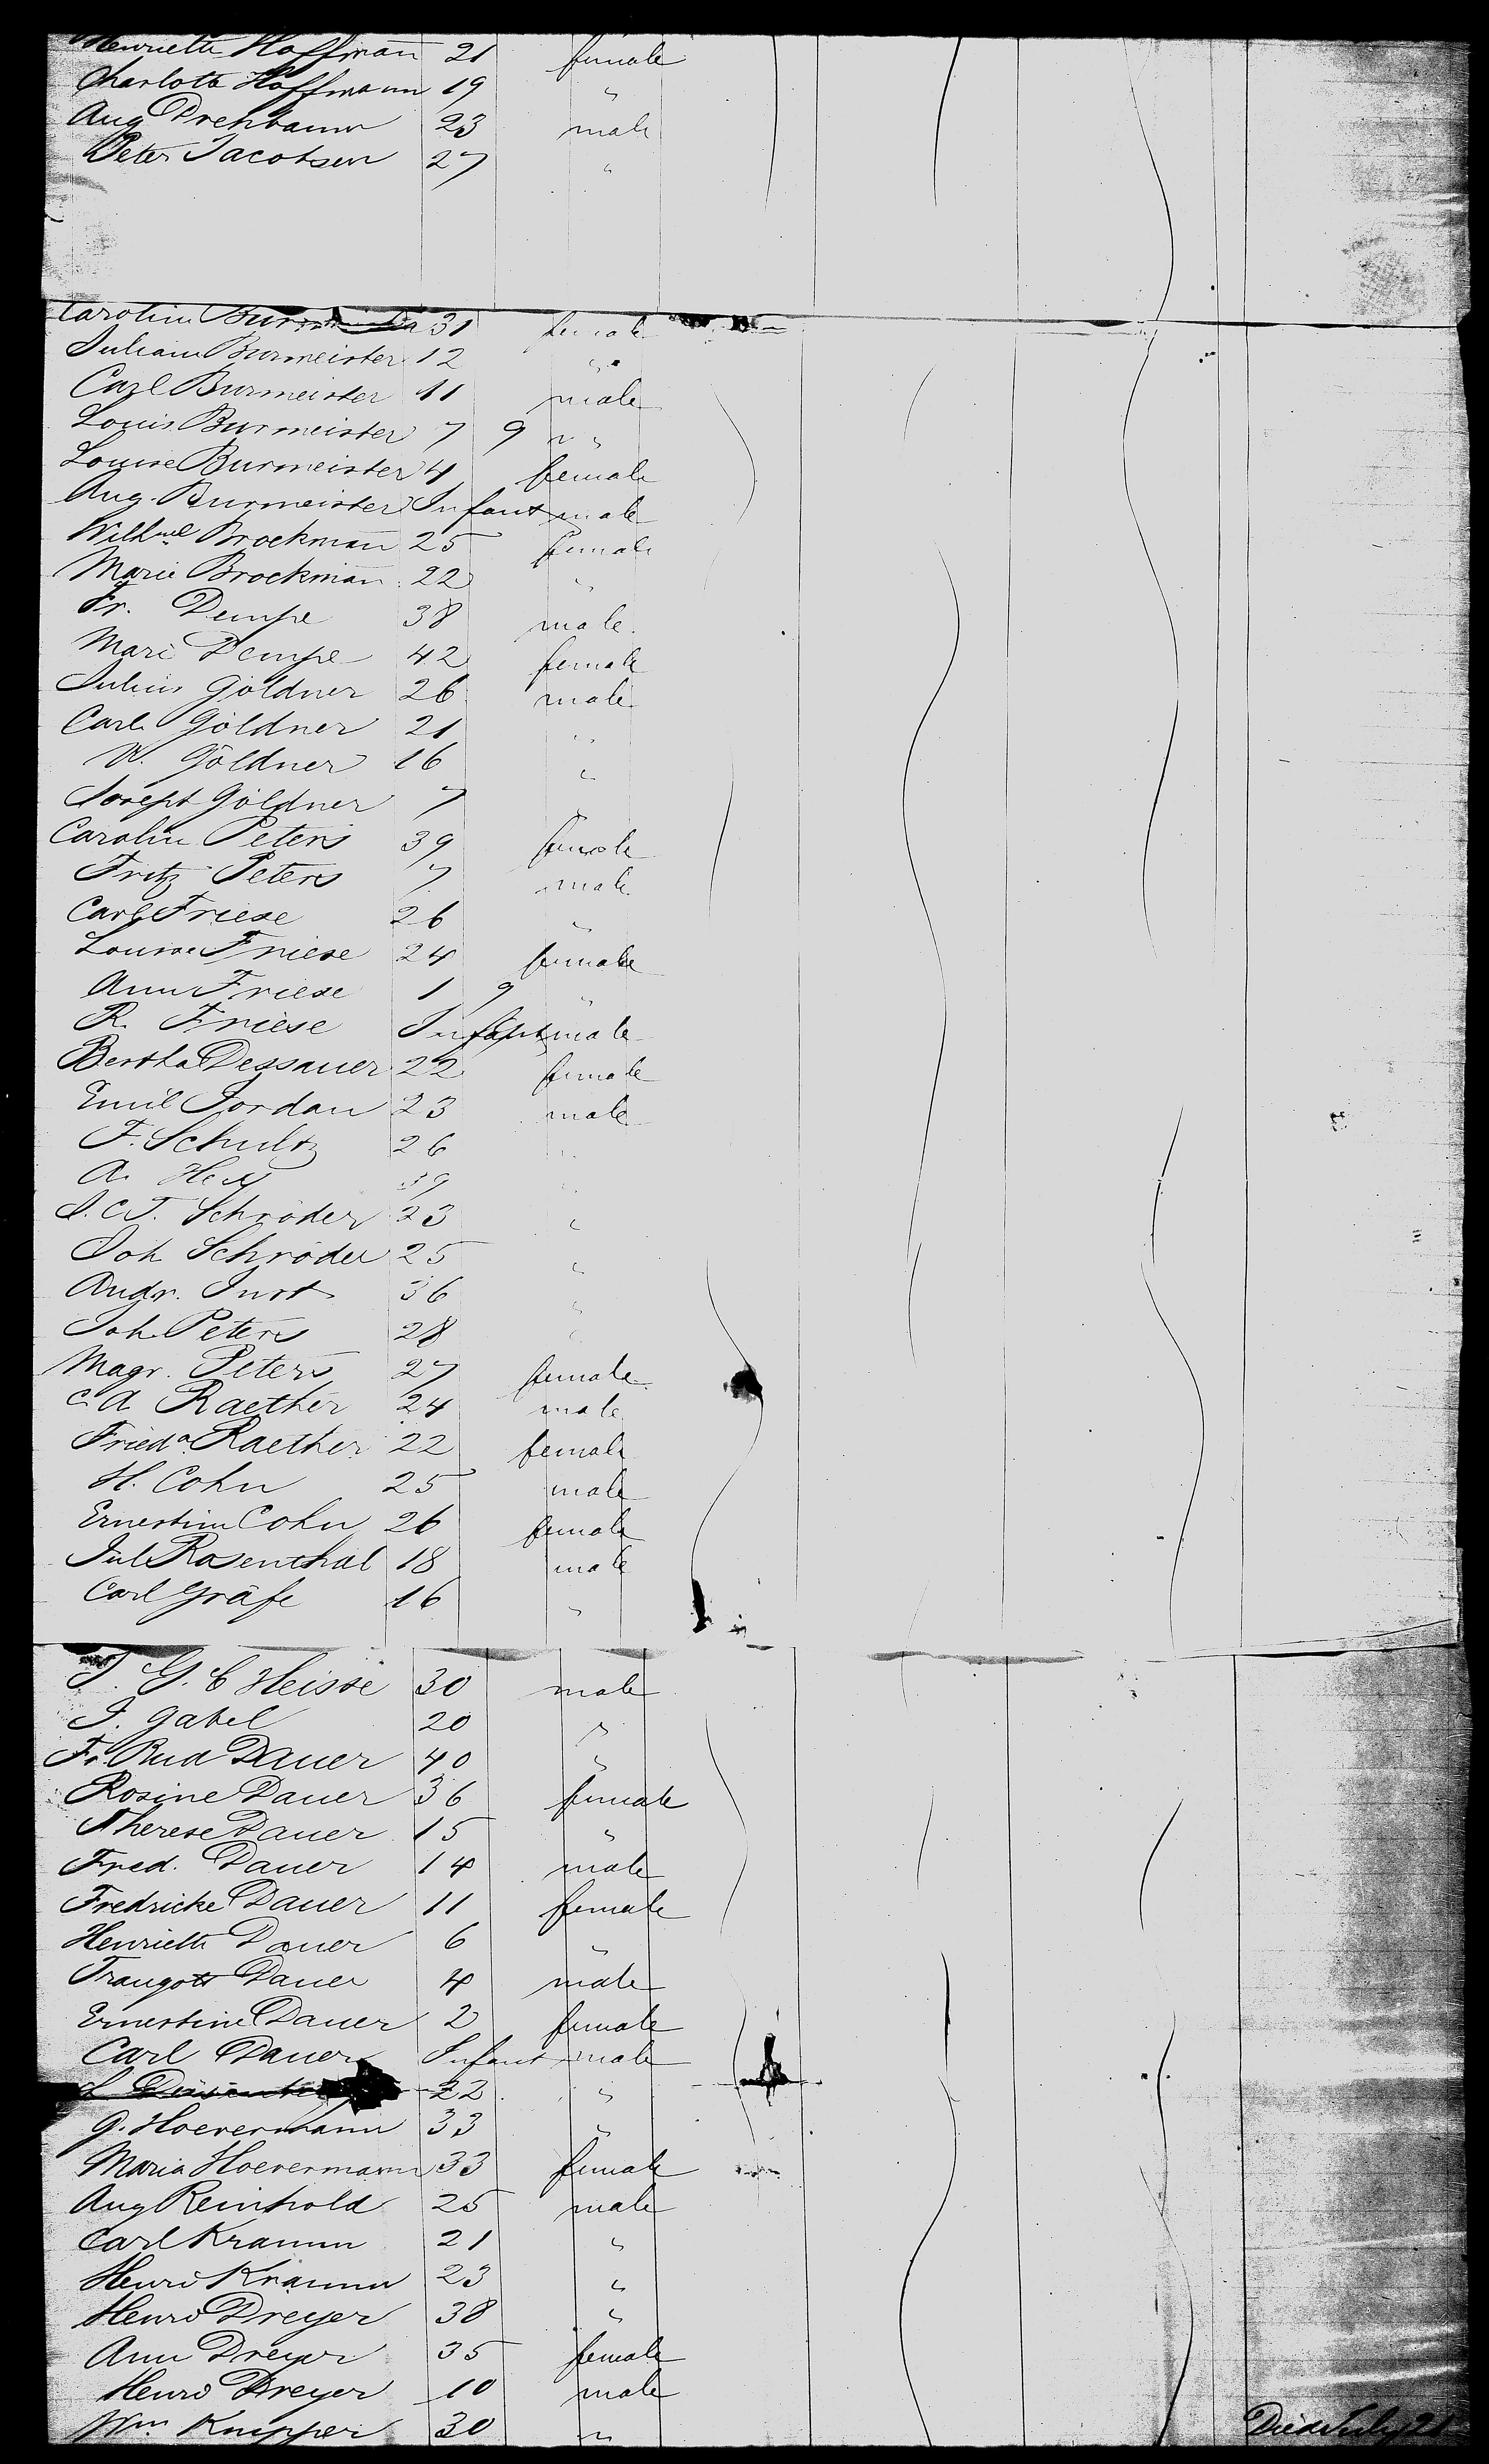 Henriette Hoffman 21 female
Charlotte Hoffmann 19 "
Aug Drehbaum 23 male
Peter Jacobsen 27 "
Carolin 31 female
Juliam Burmeister 12 "
Carl Burmeister 11 male
Louis Burmeister 7 9 "
Louise Burmeister 4 female
Aug. Burmeister Infant male
Wilhme Brockman 25 female
Marie Brockman 22 "
Fr. Dempe 38 male
Mari Dempe 42 female
Julius Göldner 26 male
Carl Göldner 21 "
W. Göldner 16 "
Joseph Göldner 7 "
Carolin Peters 39 female
Fritz Peters 7 male
Carl Friese 26 "
Louise Friese 24 female
Ann Friese 1 9 "
R. Friese Infant male
Bertha Dessauer 22 female
Emil Jordan 23 male
F. Schultz 26 "
A. 39 "
J. C. T. Schröder 23 "
Joh Schröder 25 "
Andr. Just 36 "
Joh. Peters 28 "
Magr. Peters 27 female
C. A Raether 24 male
Frieda Raether 22 female
H. Cohn 25 male
Ernestine Cohn 26 female
Jul Rosenthal 18 male
Carl Gräfe 16 "
T. G. C Heisse 30 male
J. Gabel 20 "
Fr. Rud Dauer 40 "
Rosine Dauer 36 female
Therese Dauer 15 "
Fred. Dauer 14 male
Fredricke Dauer 11 female
Henriette Dauer 6 "
Traugott Dauer 4 male
Ernestine Dauer 2 female
Carl Dauer Infant male
22 "
G. Hoevermann 33 "
Maria Hoevermann 33 female
Aug Reinhold 25 male
Carl Kramm 21 "
Henri Kramm 23 "
Henri Dreyer 38 "
Ann Dreyer 35 female
Henri Dreyer 10 male
Wm Knipper 30 " Died July 21